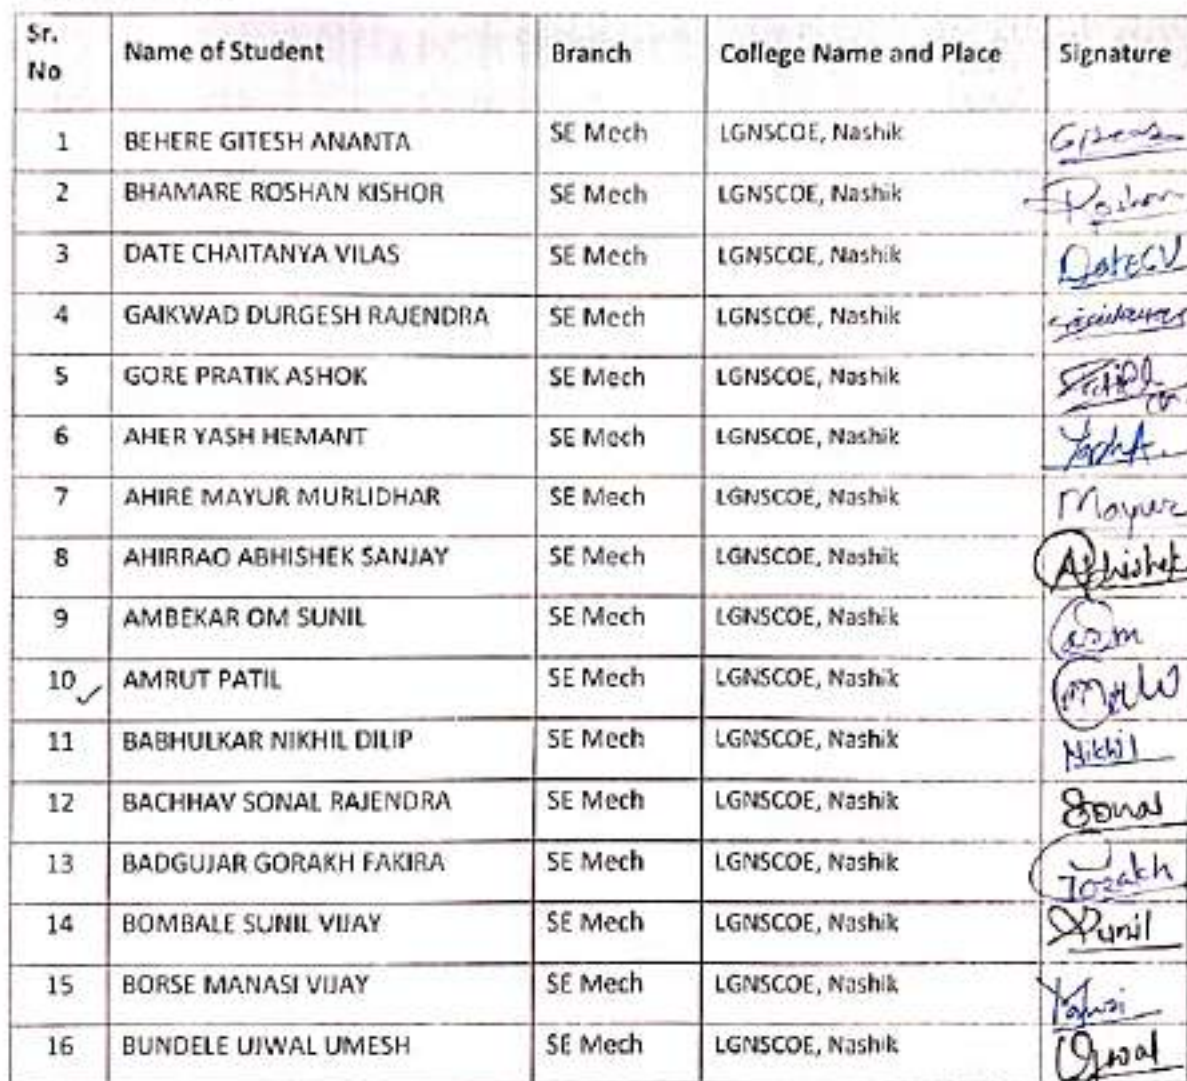 Sr. No Name of Student Branch College Name and Place Signature
1 BEHERE GITESH ANANTA SE Mech LGNSCOE, Nashik
2 BHAMARE ROSHAN KISHOR SE Mech LGNSCOE, Nashik Roshan
3 DATE CHAITANYA VILAS SE Mech LGNSCOE, Nashik DateCV
4 GAIKWAD DURGESH RAJENDRA SE Mech LGNSCOE, Nashik
5 GORE PRATIK ASHOK SE Mech LGNSCOE, Nashik
6 AHER YASH HEMANT SE Mech LGNSCOE, Nashik
7 AHIRE MAYUR MURLIDHAR SE Mech LGNSCOE, Nashik Mayur
8 AHIRRAO ABHISHEK SANJAY SE Mech LGNSCOE, Nashik Abhishek
9 AMBEKAR OM SUNIL SE Mech LGNSCOE, Nashik
10 AMRUT PATIL SE Mech LGNSCOE, Nashik
11 BABHULKAR NIKHIL DILIP SE Mech LGNSCOE, Nashik Nikhil
12 BACHHAV SONAL RAJENDRA SE Mech LGNSCOE, Nashik Sonal
13 BADGUJAR GORAKH FAKIRA SE Mech LGNSCOE, Nashik Gorakh
14 BOMBALE SUNIL VIJAY SE Mech LGNSCOE, Nashik Sunil
15 BORSE MANASI VIJAY SE Mech LGNSCOE, Nashik
16 BUNDELE UJWAL UMESH SE Mech LGNSCOE, Nashik Ujwal